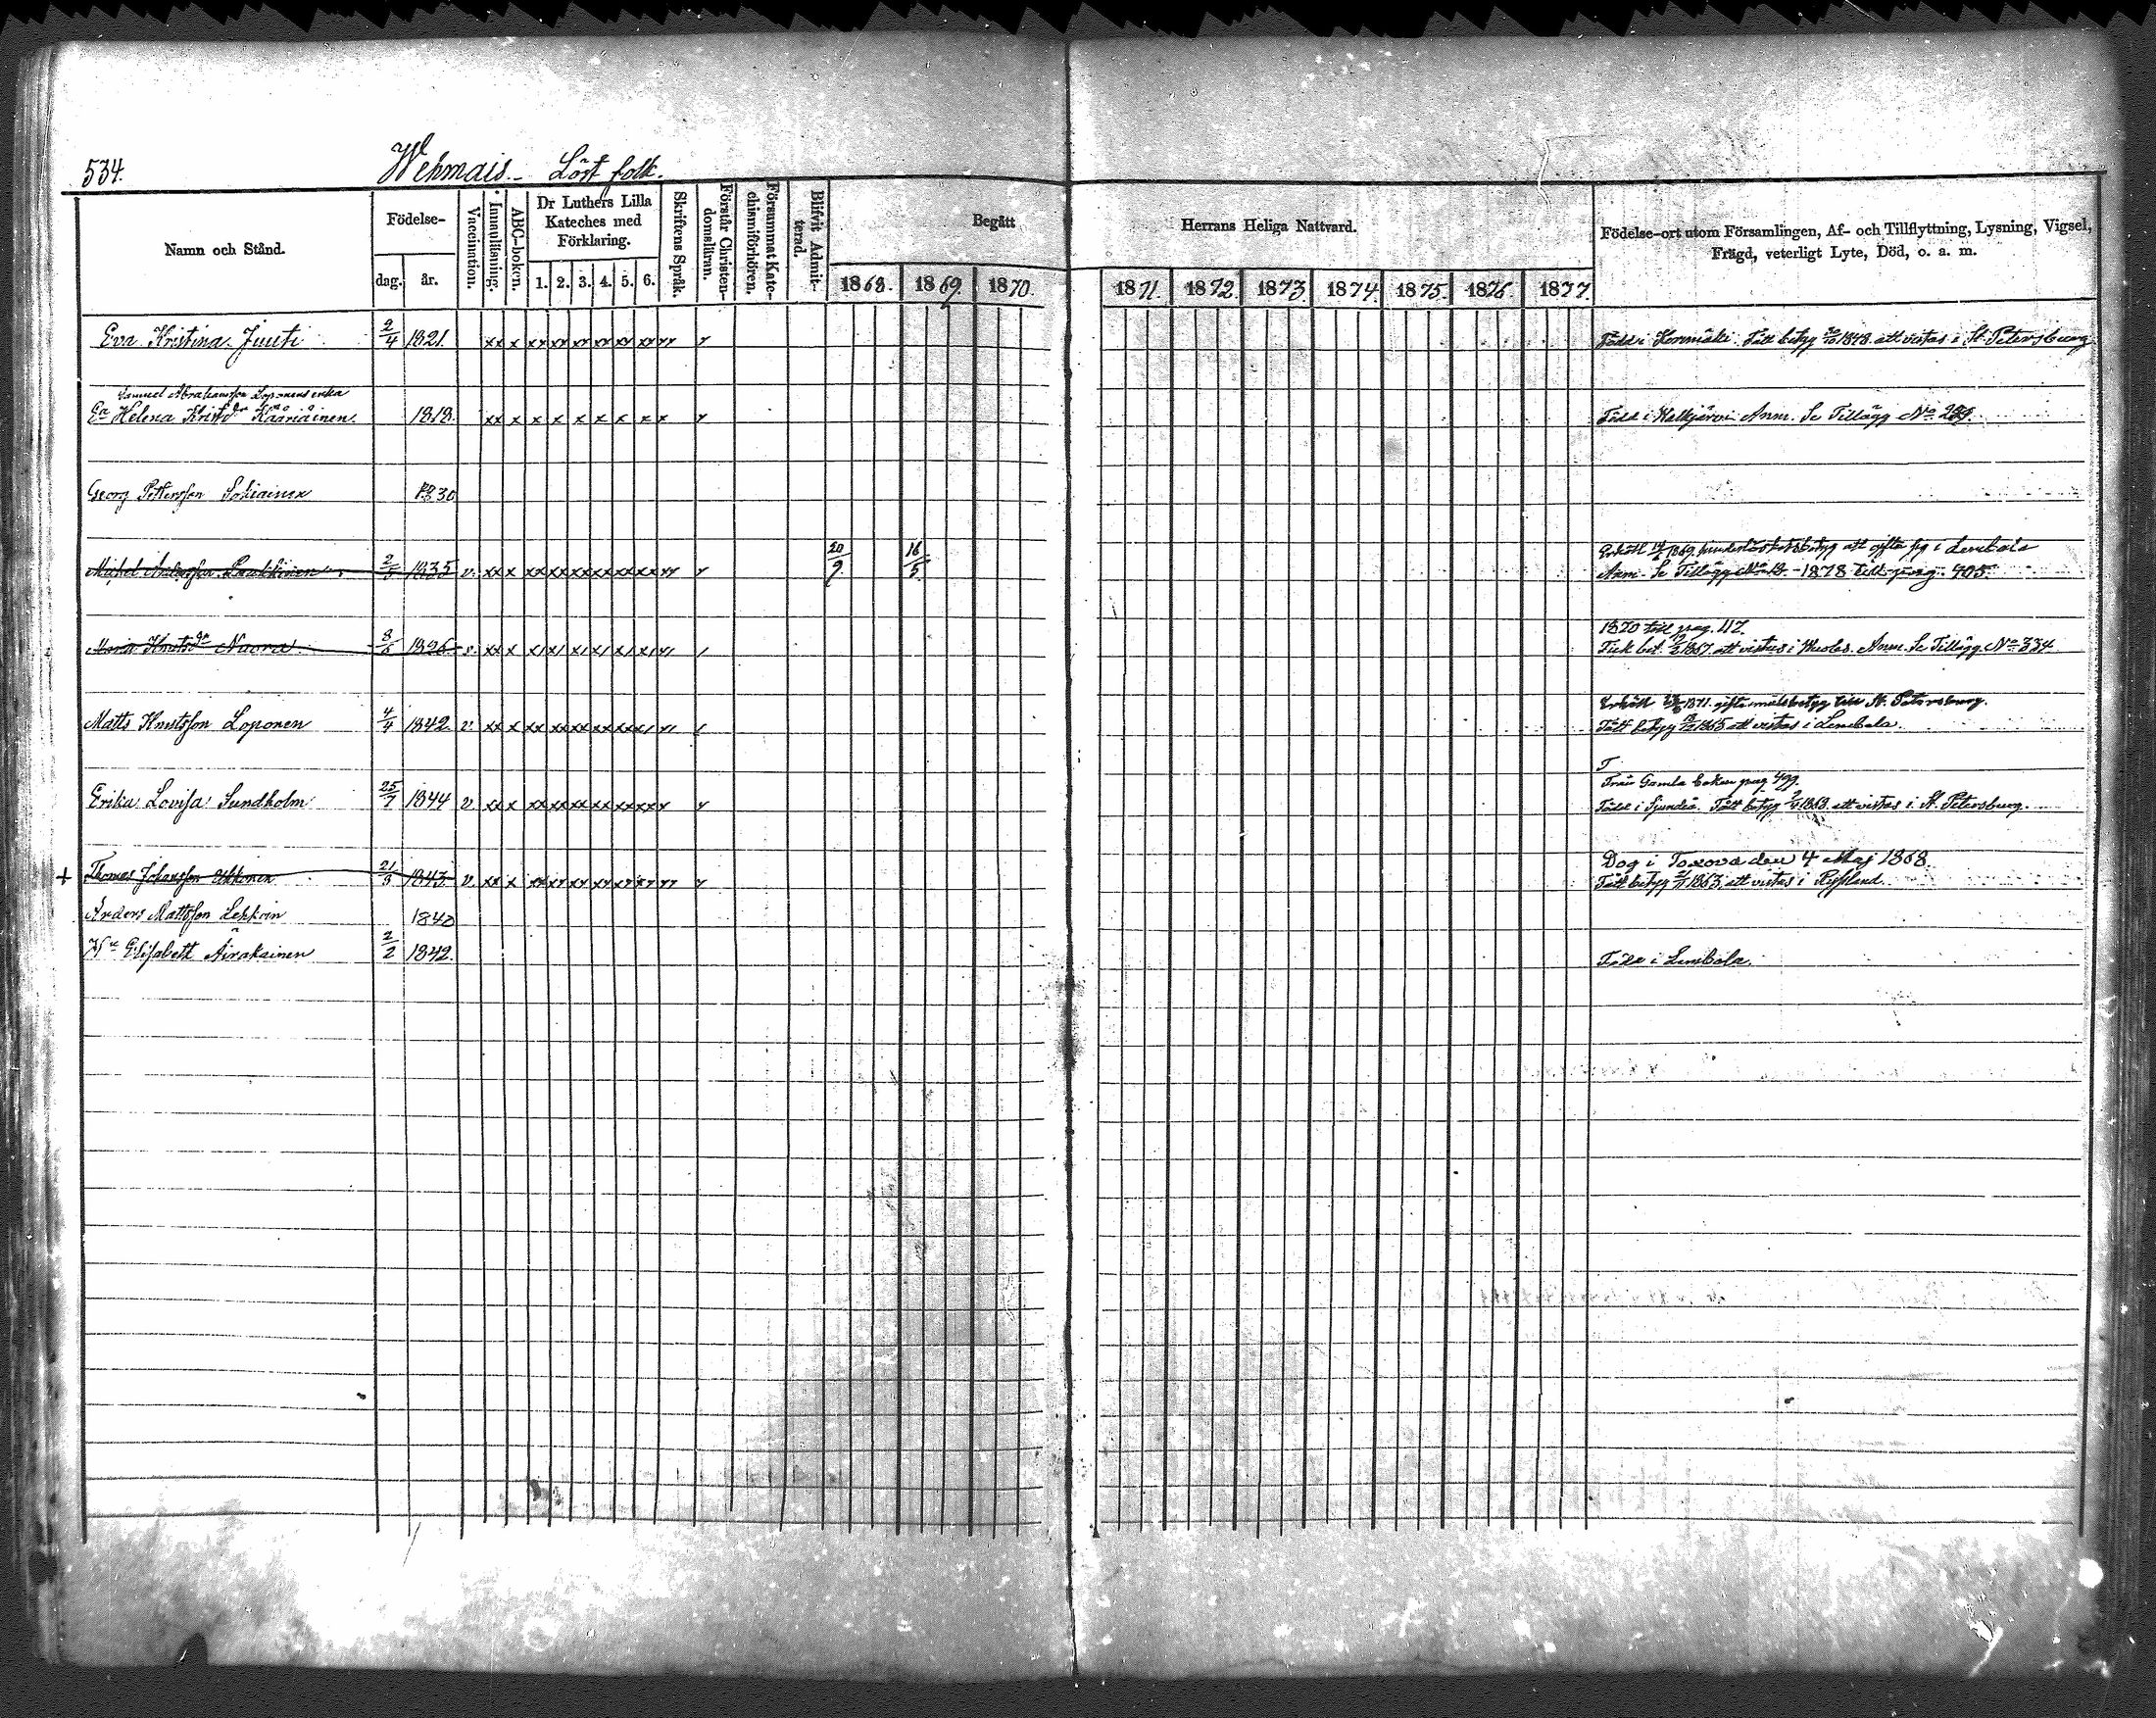 534.
Wehmais. Löst folk.
Namn och Stånd.
Födelse-
dag. år.
Vaccination.
Innanläsning.
ABC-boken.
Dr Luthers Lilla
Kateches med
Förklaring.
1. 2. 3. 4. 5. 6.
Skriftens Språk.
Förstår Christen-
domsläran.
Försummat Kate-
chismiförhören.
Blifvit Admit-
terad.
Begått
Herrans Heliga Nattvard.
1868. 1869. 1870. 1871. 1872. 1873. 1874. 1875. 1876. 1877.
Födelse-ort utom Församlingen, Af- och Tillflyttning, Lysning, Vigsel,
Frägd, veterligt Lyte, Död, o. a. m.
Eva Kristina Juuti 2/4 1821. xx x xx xx xx xx xx xx
Född i Fått betyg 1848. att vistas i St. Petersburg
Samuel Abrahamsson Loponens enka
Ea Helena Kristsdr Kääriäinen. 1818. xx x x x x x x x x
Född i Walkjärvi Anm. Se Tillägg No 289.
Georg Pettersson 1830
Michel Andersson 2/5 1835 v. xx x xx xx xx xx xx xx 20/9 16/5
Erhöll 1869 hinderlöshetsbetyg att gifta sig i Lembala
Anm. Se Tillägg 1878 till pag. 405.
Maria Knutsdr Nuora 8/6 1826 v. xx x
1870 till pag. 117.
Fick bet. 1867. att vistas i Anm. Se Tillägg No 334
Matts Knutsson Loponen 4/4 1842. v. xx x xx xx xx xx
Erhöll 1871. giftermålsbetyg till St. Petersburg.
Fått betyg 1865 att vistas i Lembala.
Erika Lovisa Sundholm 25/7 1844 v xx x xx xx xx xx xx
Från Gamla boken pag. 499.
Född i Sjundeå. Fått betyg 1863. att vistas i St. Petersburg.
+ Thomas Johansson Ukkonen 21/3 1843. v. xx x
Dog i Toxova den 4 Maj 1868.
Fått betyg 1863. att vistas i Ryssland.
Anders Mattsson 1840
Hu Elisabett Äirakainen 2/2 1842.
Född i Lembala.